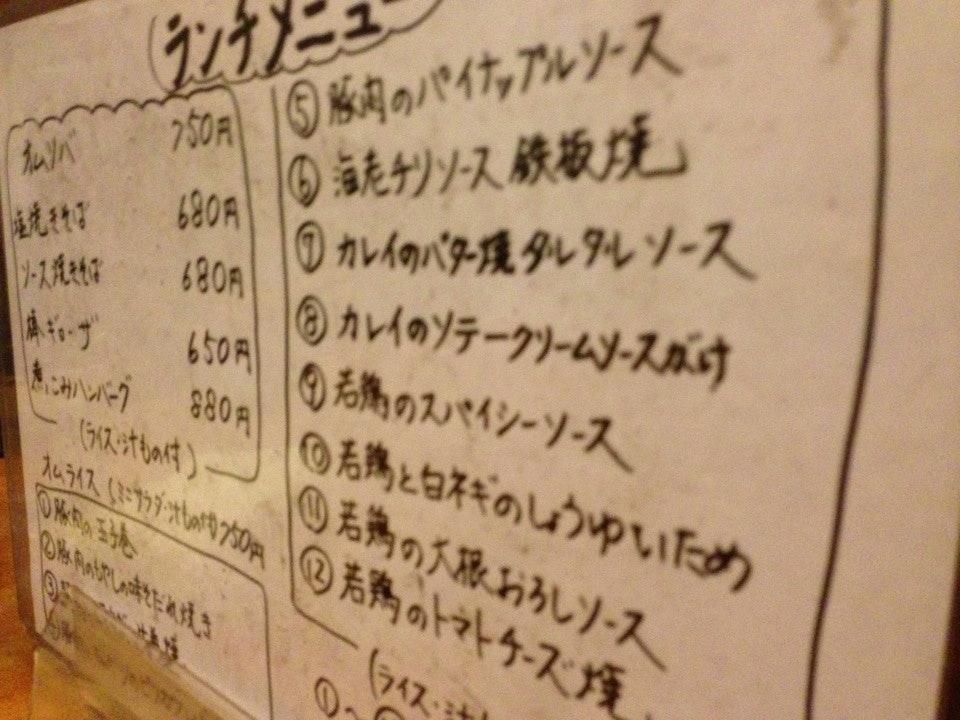 ランチメニュー
オムソバ 750円
塩焼きそば 680円
ソース焼きそば 680円
豚ギョーザ 650円
煮こみハンバーグ 880円
(ライス・汁もの付)
オムライス (ミニサラダ・汁もの付) 750円
① 豚肉の玉子巻
② 豚肉のもやしの味そだれ焼き
③
⑤ 豚肉のパイナップルソース
⑥ 海老チリソース鉄板焼
⑦ カレイのバター焼タルタルソース
⑧ カレイのソテークリームソースがけ
⑨ 若鶏のスパイシーソース
⑩ 若鶏と白ネギのしょうゆいため
⑪ 若鶏の大根おろしソース
⑫ 若鶏のトマトチーズ焼
(ライス・汁
①〜